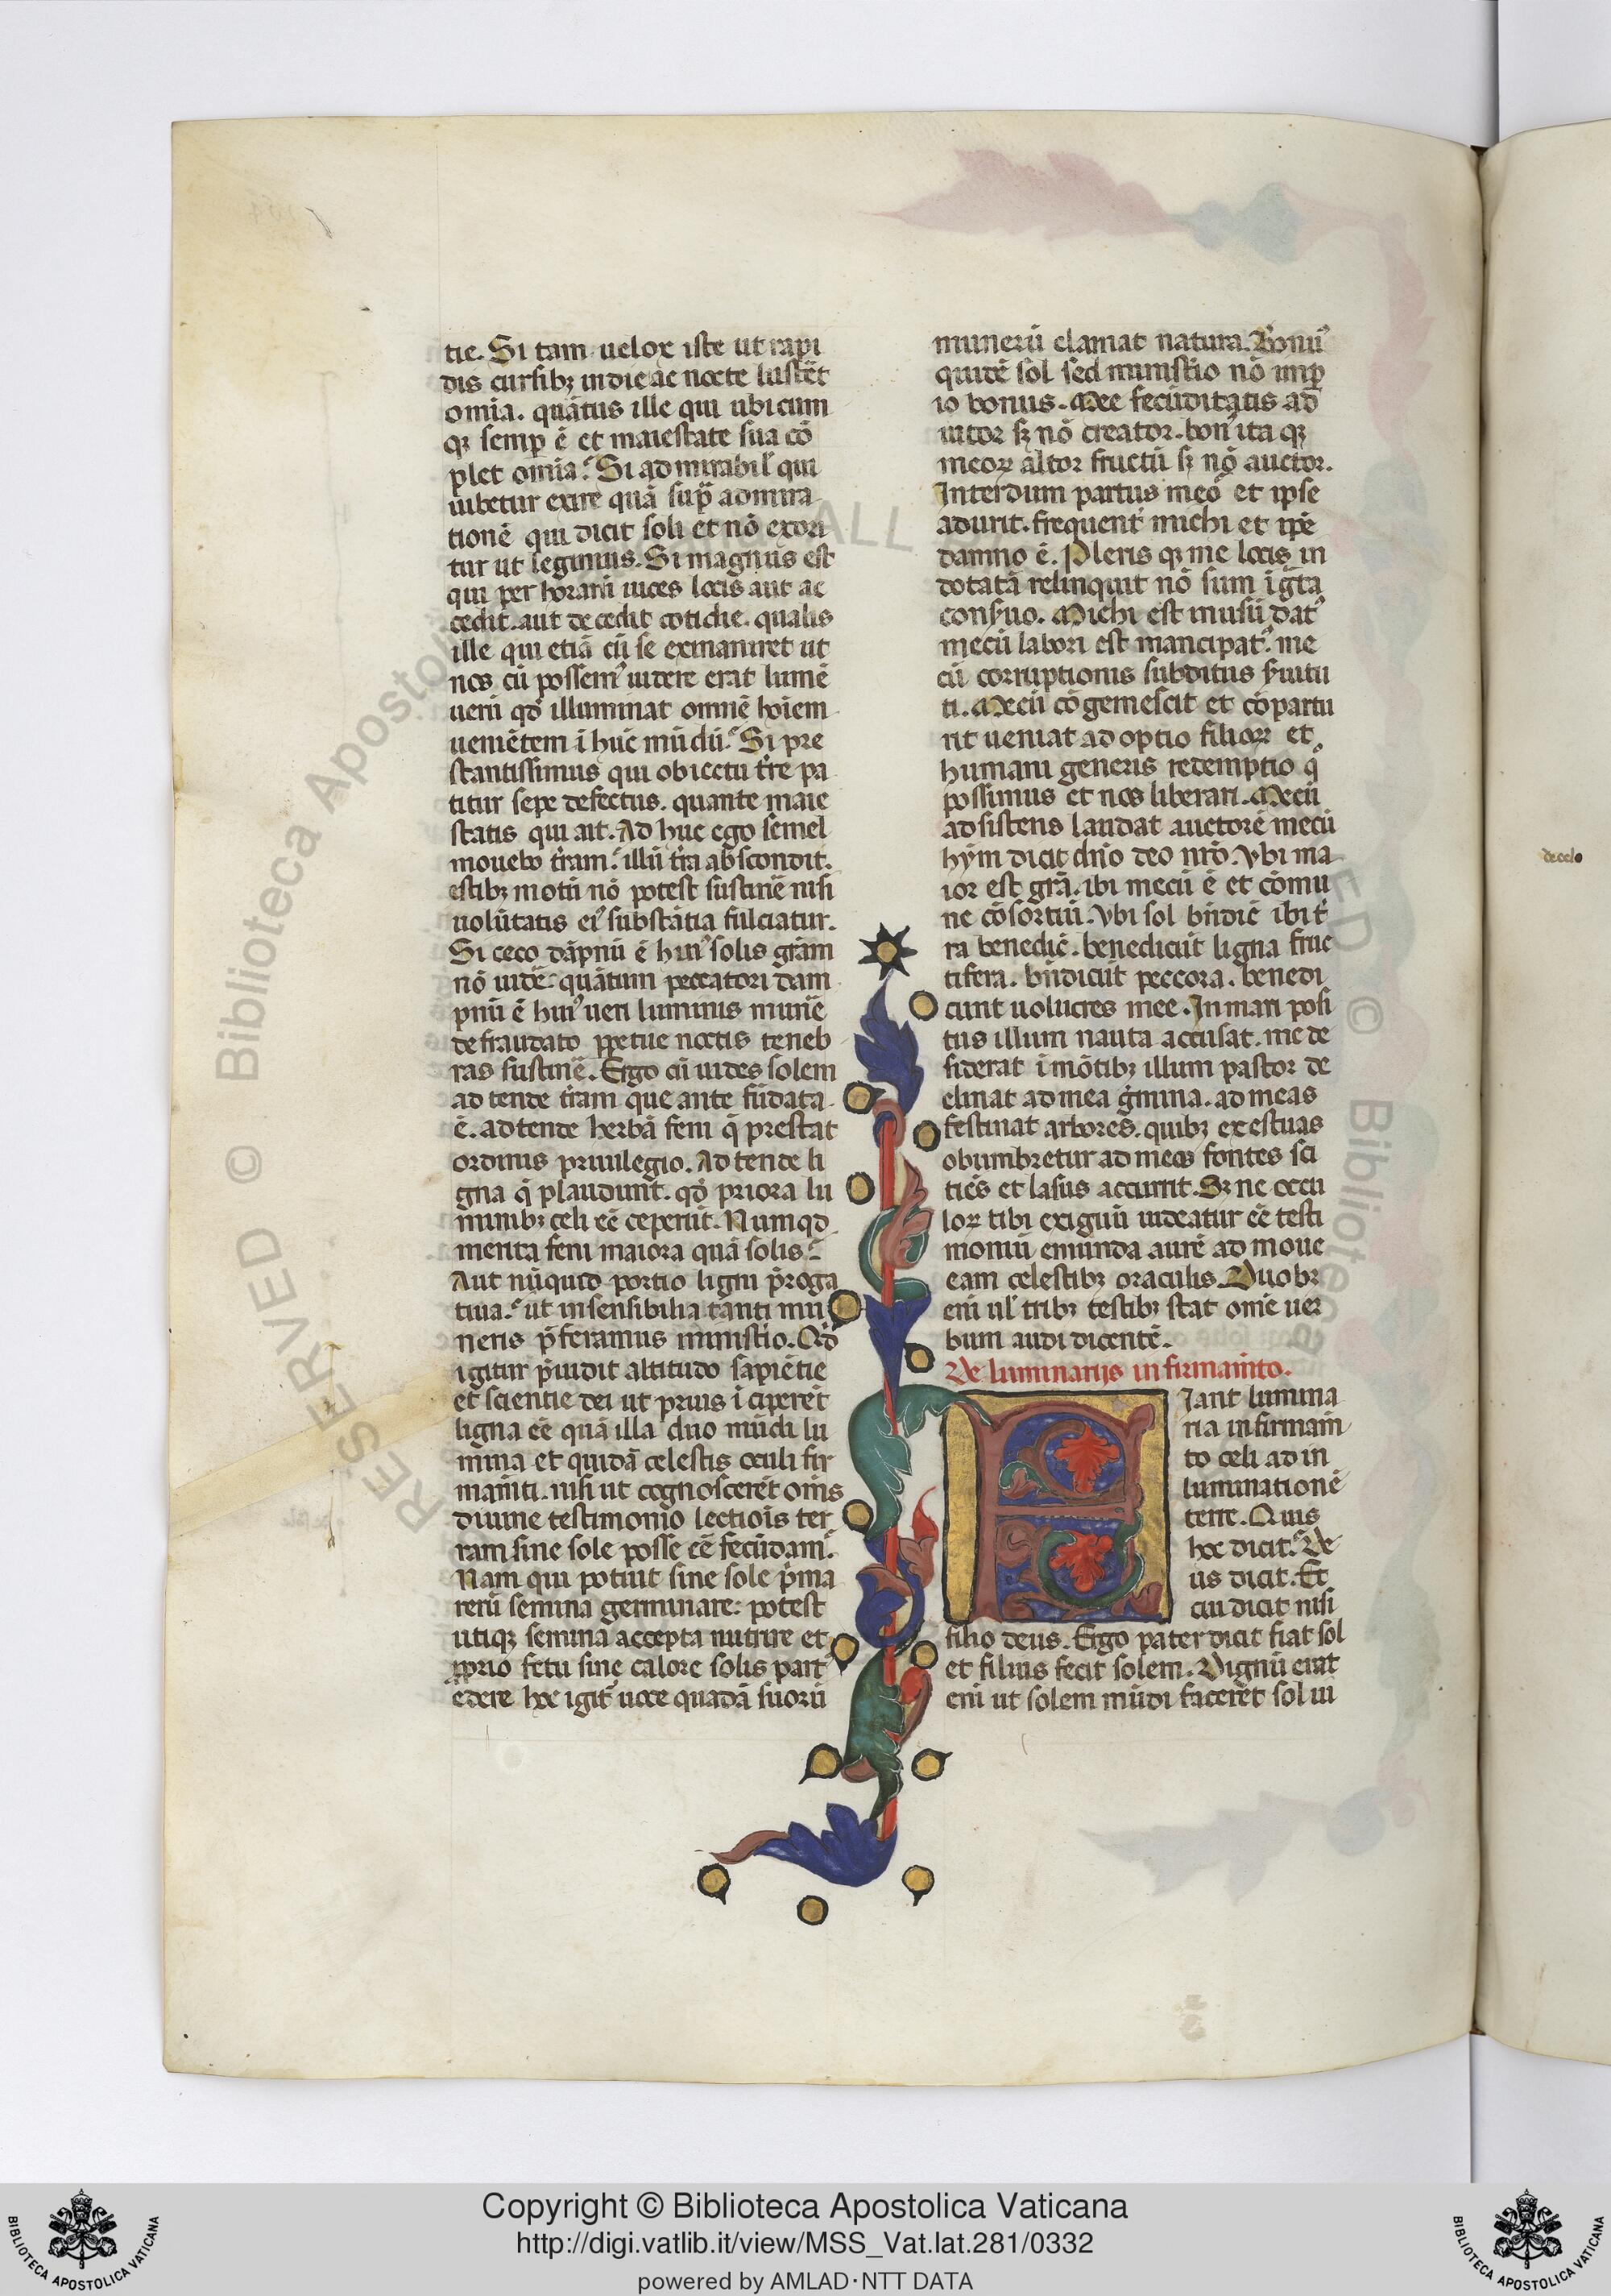 tie. Si tam uelox iste ut rapi
dis cursibꝫ in die ac nocte lustret
omīa. quātus ille qui ubicum
qꝫ semꝑ ē et maiestate sua cō
plet omīa. Si admirabil' qui
iubetur exire quā suꝑ admira
tionē qui dicit soli et nō exori
tur ut legimus. Si magnus est
qui per horarū uices locis aut ac
cedit. aut decedit cotidie. qualis
ille qui etiā cū se exinaniret ut
nos cū possem᾽ uidere erat lumē
uerū qd̄ illuminat omnē hoīem
ueniētem ī hūc mūdū. Si pre
stantissimus qui obiectu t̄re pa
titur sepe defectus. quante maie
statis qui ait. Ad huc ego semel
mouebo t̄ram. illū t̄ra abscondit.
estibꝫ motū nō potest sustinē nisi
uolūtatis ei᾽ substātia fulciatur.
Si ceco dāpnū ē hui᾽ solis grām
nō uidē. quātum peccatori dam
pnū ē hui᾽ ueri luminis munē
defraudato ꝑpetue noctis teneb
ras sustinē. Ergo cū uides solem
ad tende t̄ram que ante fūdata
ē. ad tende herbā feni q̄ prestat
ordinis priuilegio. Ad tende li
gna q̄ plaudunt. qd̄ priora lu
minibꝫ celi eē ceperūt. Numqd
merita feni maiora quā solis.
Aut nūquid portio ligni p̄roga
tiua. ut insensibilia tanti mu
neris p̄feramus ministio. Qd̄
igitur p̄uidit altitudo sapiētie
et scientie dei ut prius īciperēt
ligna eē quā illa duo mūdi lu
mina et quidā celestis oculi fir
maīnti. nisi ut cognoscerēt om̄s
diuine testimonio lectiōis ter
ram sine sole posse eē fecūdam.
Nam qui potuit sine sole p̄ma
rerū semina germinare: potest
utiqꝫ semina accepta nutrire et
ꝓprio fetu sine calore solis part᾽
edere hoc igit᾽ uoce quadā suorū
munerū clamat natura. Bonu᾽
quidē sol sed ministio nō imꝑ
io bonus. Mee fecūditatis ad
iutor sꝫ nō creator. bon᾽ ita qꝫ
meoꝝ altor fructū sꝫ nō auctor.
Interdum partus meō et ipse
adurit. frequent᾽ michi et ip̄e
damno ē. Pleris qꝫ me locis in
dotatā relinquit nō sum īgr̄ta
conſuo. Michi est musū dat᾽
mecū labori est mancipat᾽. me
cū corruptionis subditus ſuitu
ti. Mecū cōgemescit et cōpartu
rit ueniat adoptio filioꝝ et
humani generis redemptio q̊
possimus et nos liberari. Mecū
adsistens laudat auctorē mecū
hȳm dicit dn̄o deo nr̄o. Vbi ma
ior est grā. ibi mecū ē et cōmu
ne cōsortiū. Vbi sol bn̄dic̄ ibi t᾽
ra benedic̄. benedicūt ligna fruc
tifera. bn̄dicūt peccora. benedi
cunt uolucres mee. In mari posi
tus illum nauta accusat. me de
siderat ī mōtibꝫ illum pastor de
clinat ad mea ḡmina. ad meas
festinat arbores. quibꝫ exestuas
obumbretur ad meos fontes sci
tiēs et lasus accurrit. Sꝫ ne occu
loꝝ tibi exiguū uideatur eē testi
moniū emunda aurē ad moue
eam celestibꝫ oraculis. Duobꝫ
eni ul᾽ tribꝫ testibꝫ stat om̄e uer
bum audi dicentē.
De luminarijs in firmaīnto.
Fiant lumina
ria in firmaīn
to celi ad in
luminationē
terre. Quis
hoc dicit. De
us dicit. Et
cui dicit nisi
filio deus. Ergo pater dicit fiat sol
et filius fecit solem. Dignū erat
eni ut solem mūdi facerēt sol iu
de celo
RESERVED © Biblioteca Apostoli
ALL
ED © Biblioteca
BIBLIOTECA APOSTOLICA VATICANA
Copyright © Biblioteca Apostolica Vaticana
http://digi.vatlib.it/view/MSS_Vat.lat.281/0332
powered by AMLAD·NTT DATA
BIBLIOTECA APOSTOLICA VATICANA